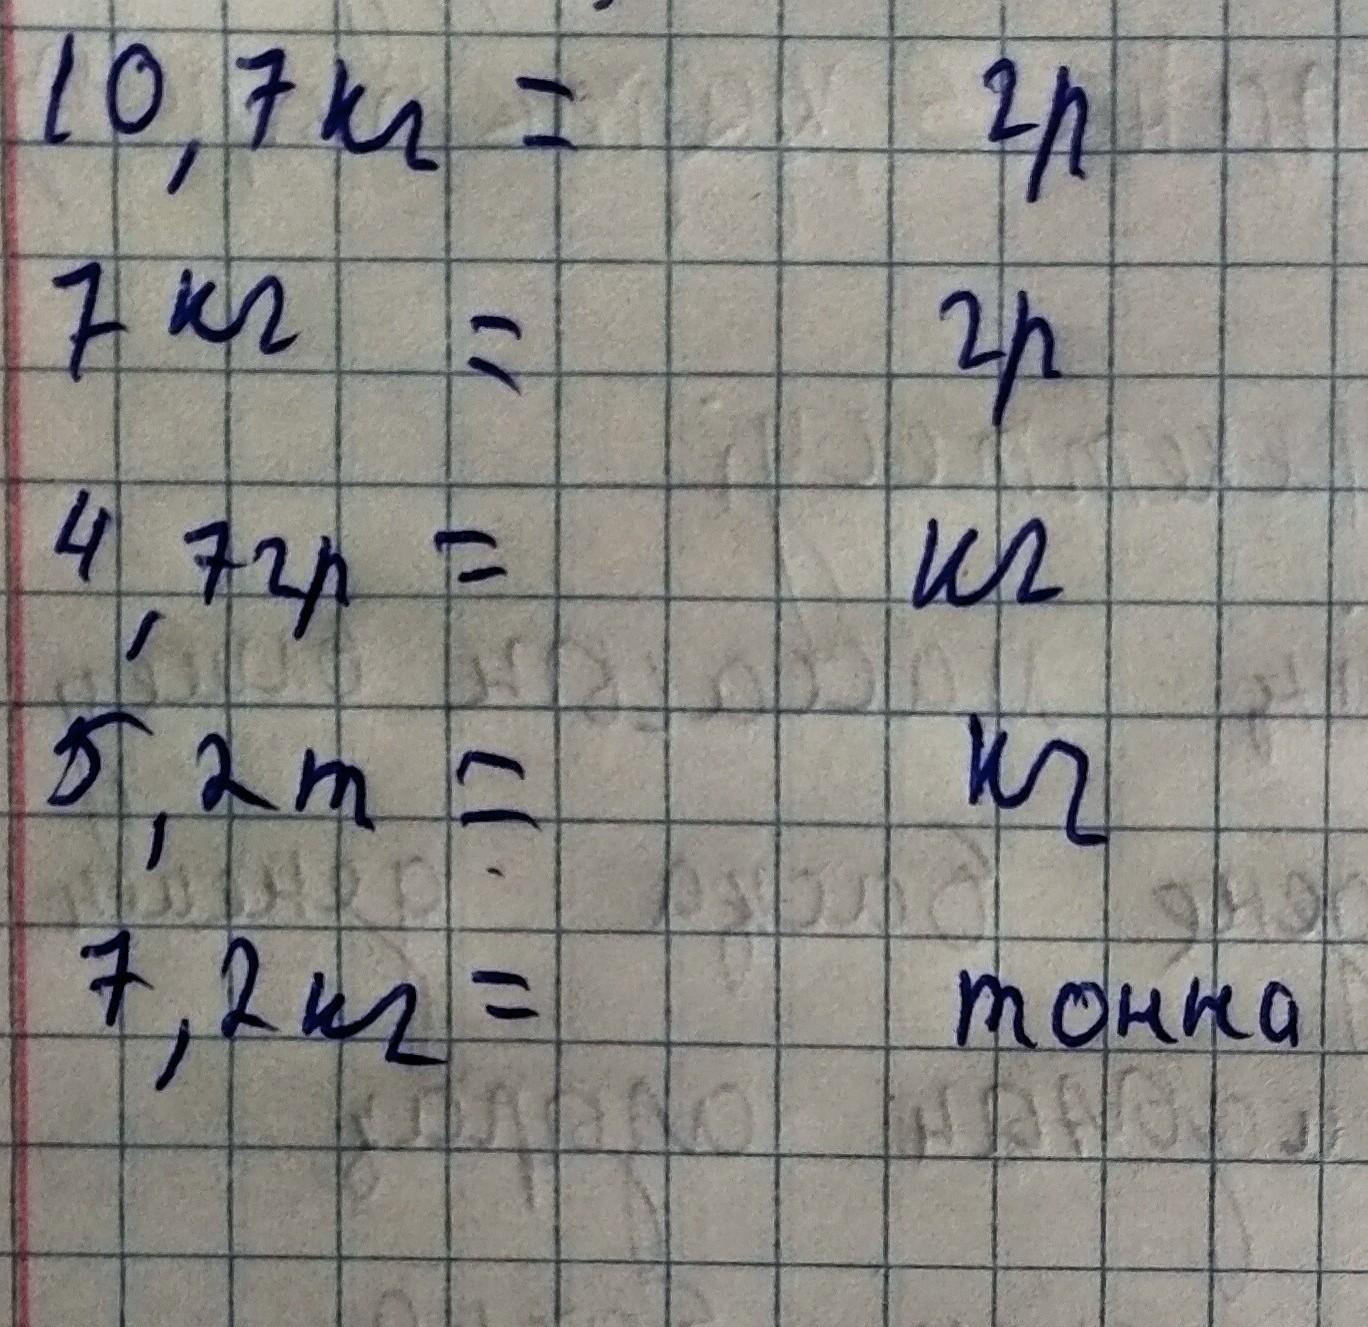 10,7кг = гр
7 кг = гр
4,7гр = кг
5,2т = кг
7,2кг = тонна